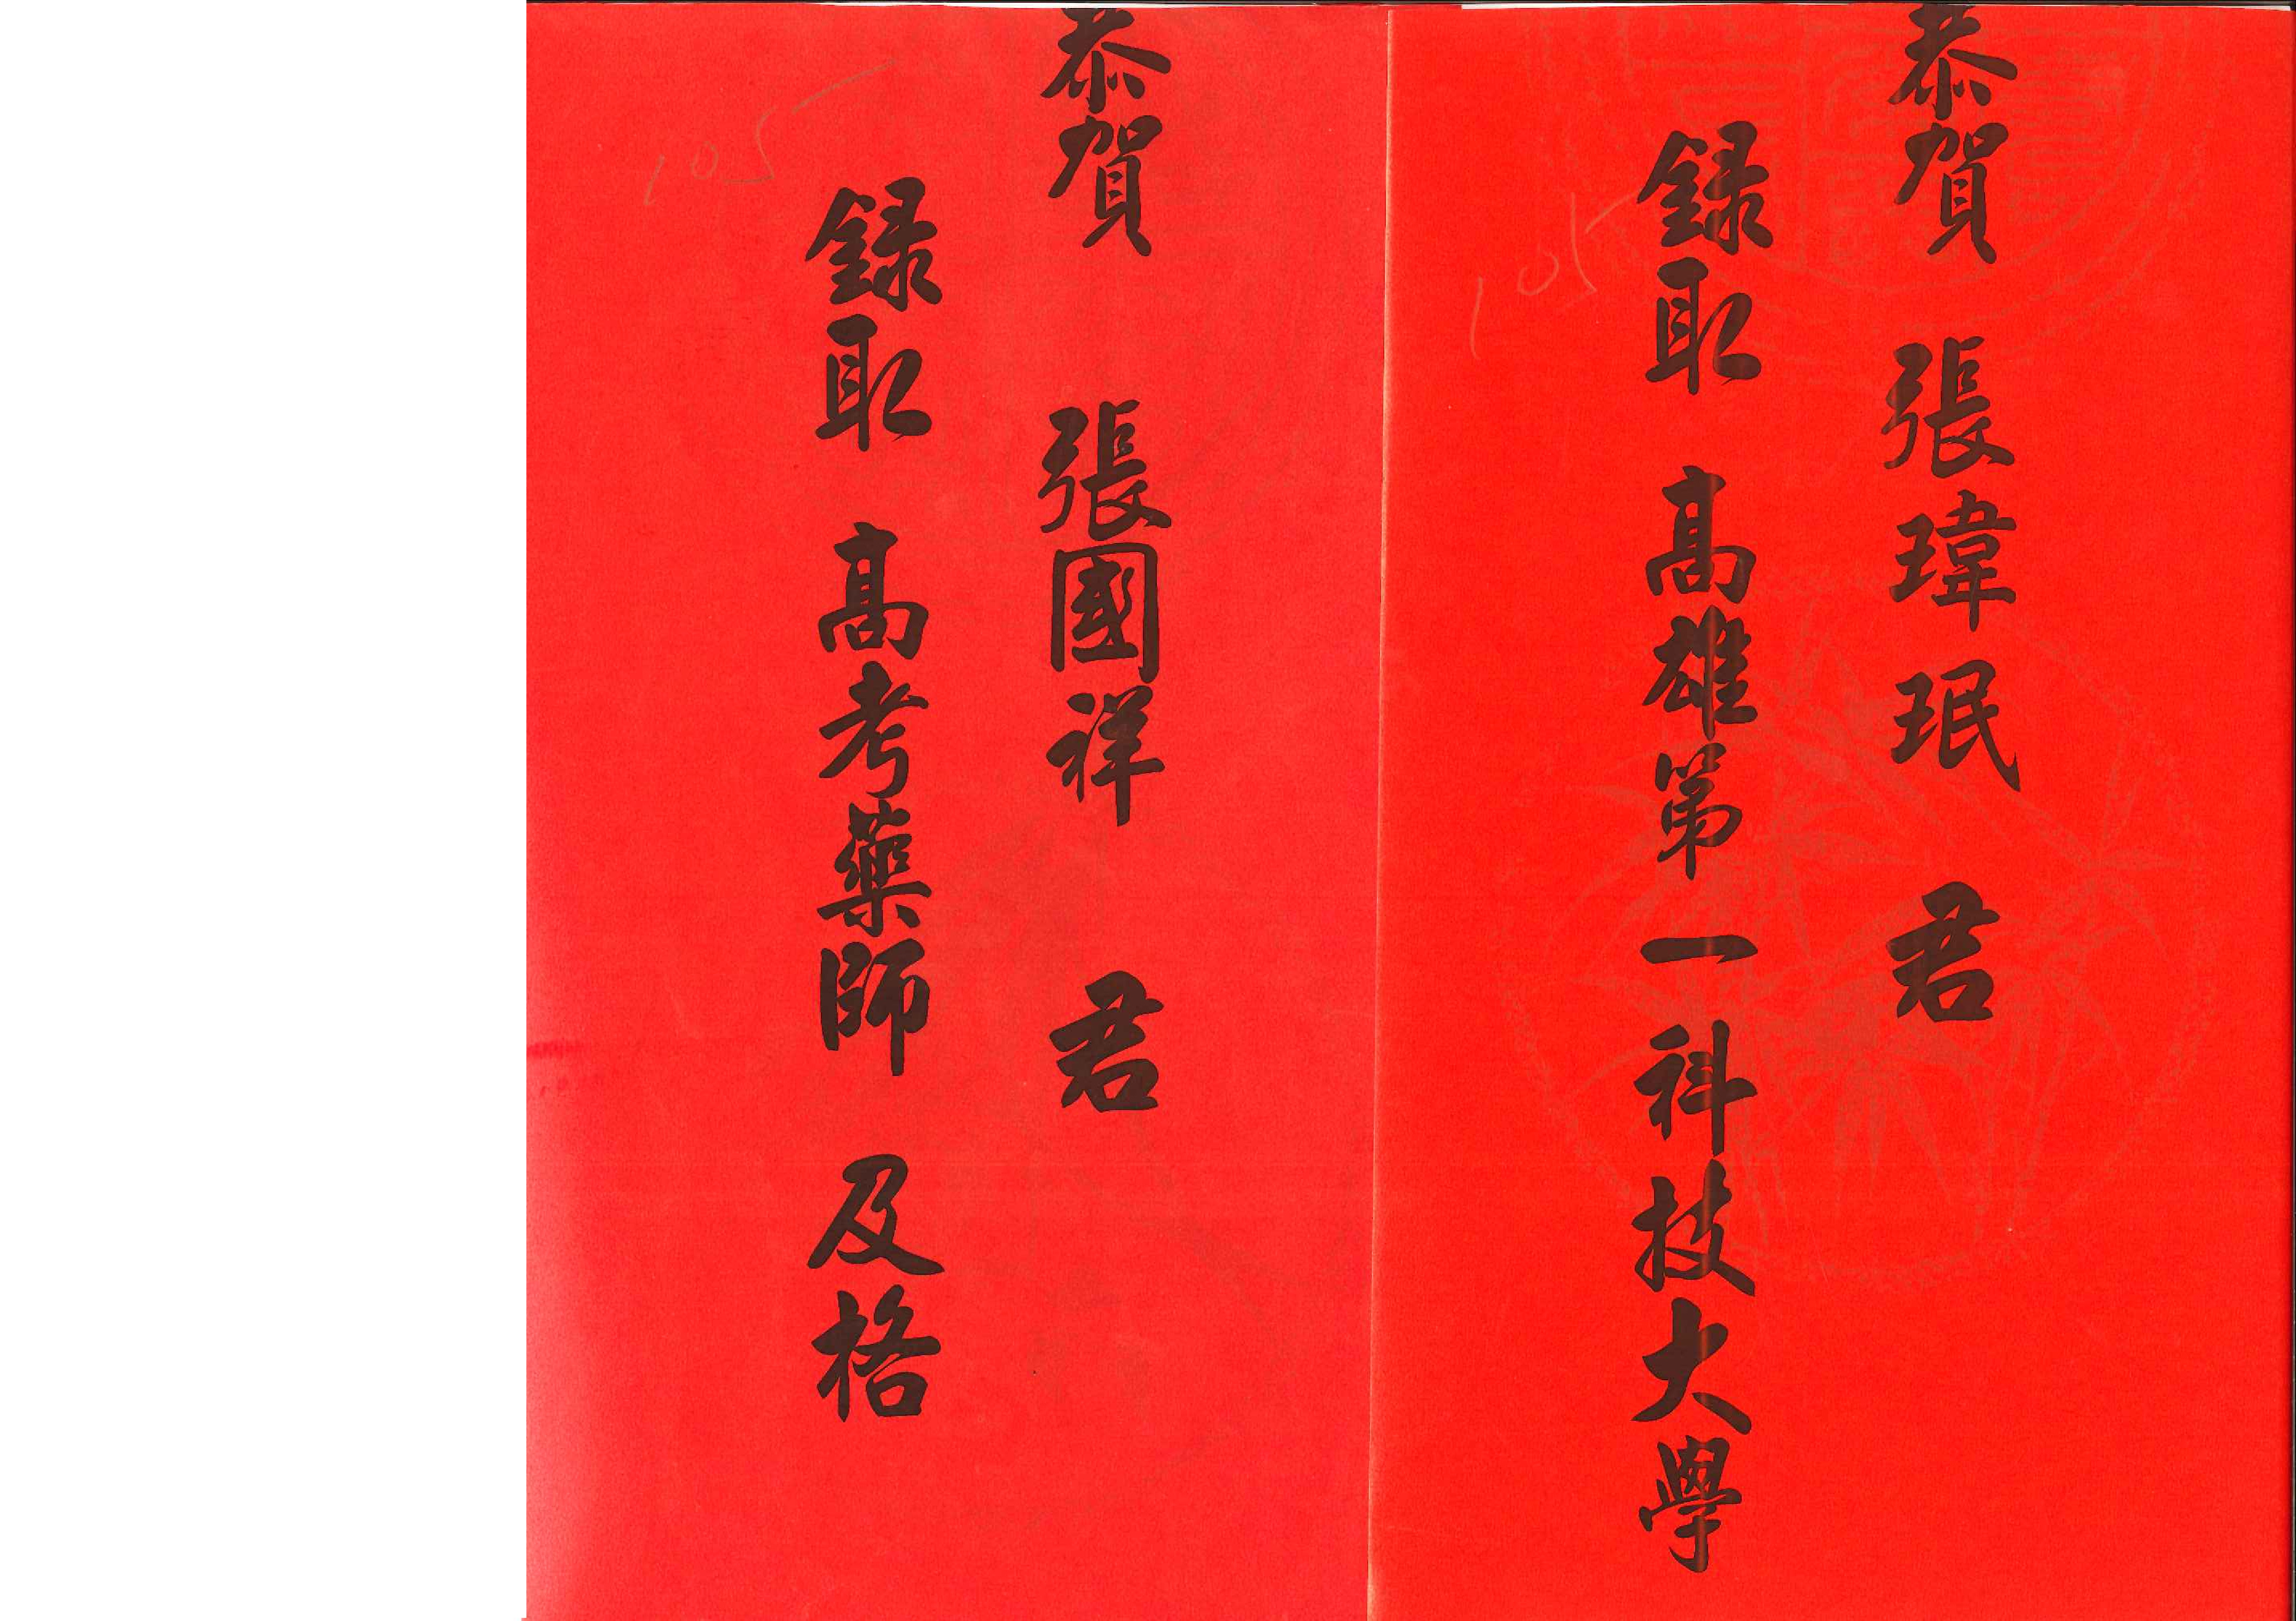 恭賀 張瑋珉 君
錄取 高雄第一科技大學
105
恭賀 張國祥 君
錄取 高考藥師 及格
105